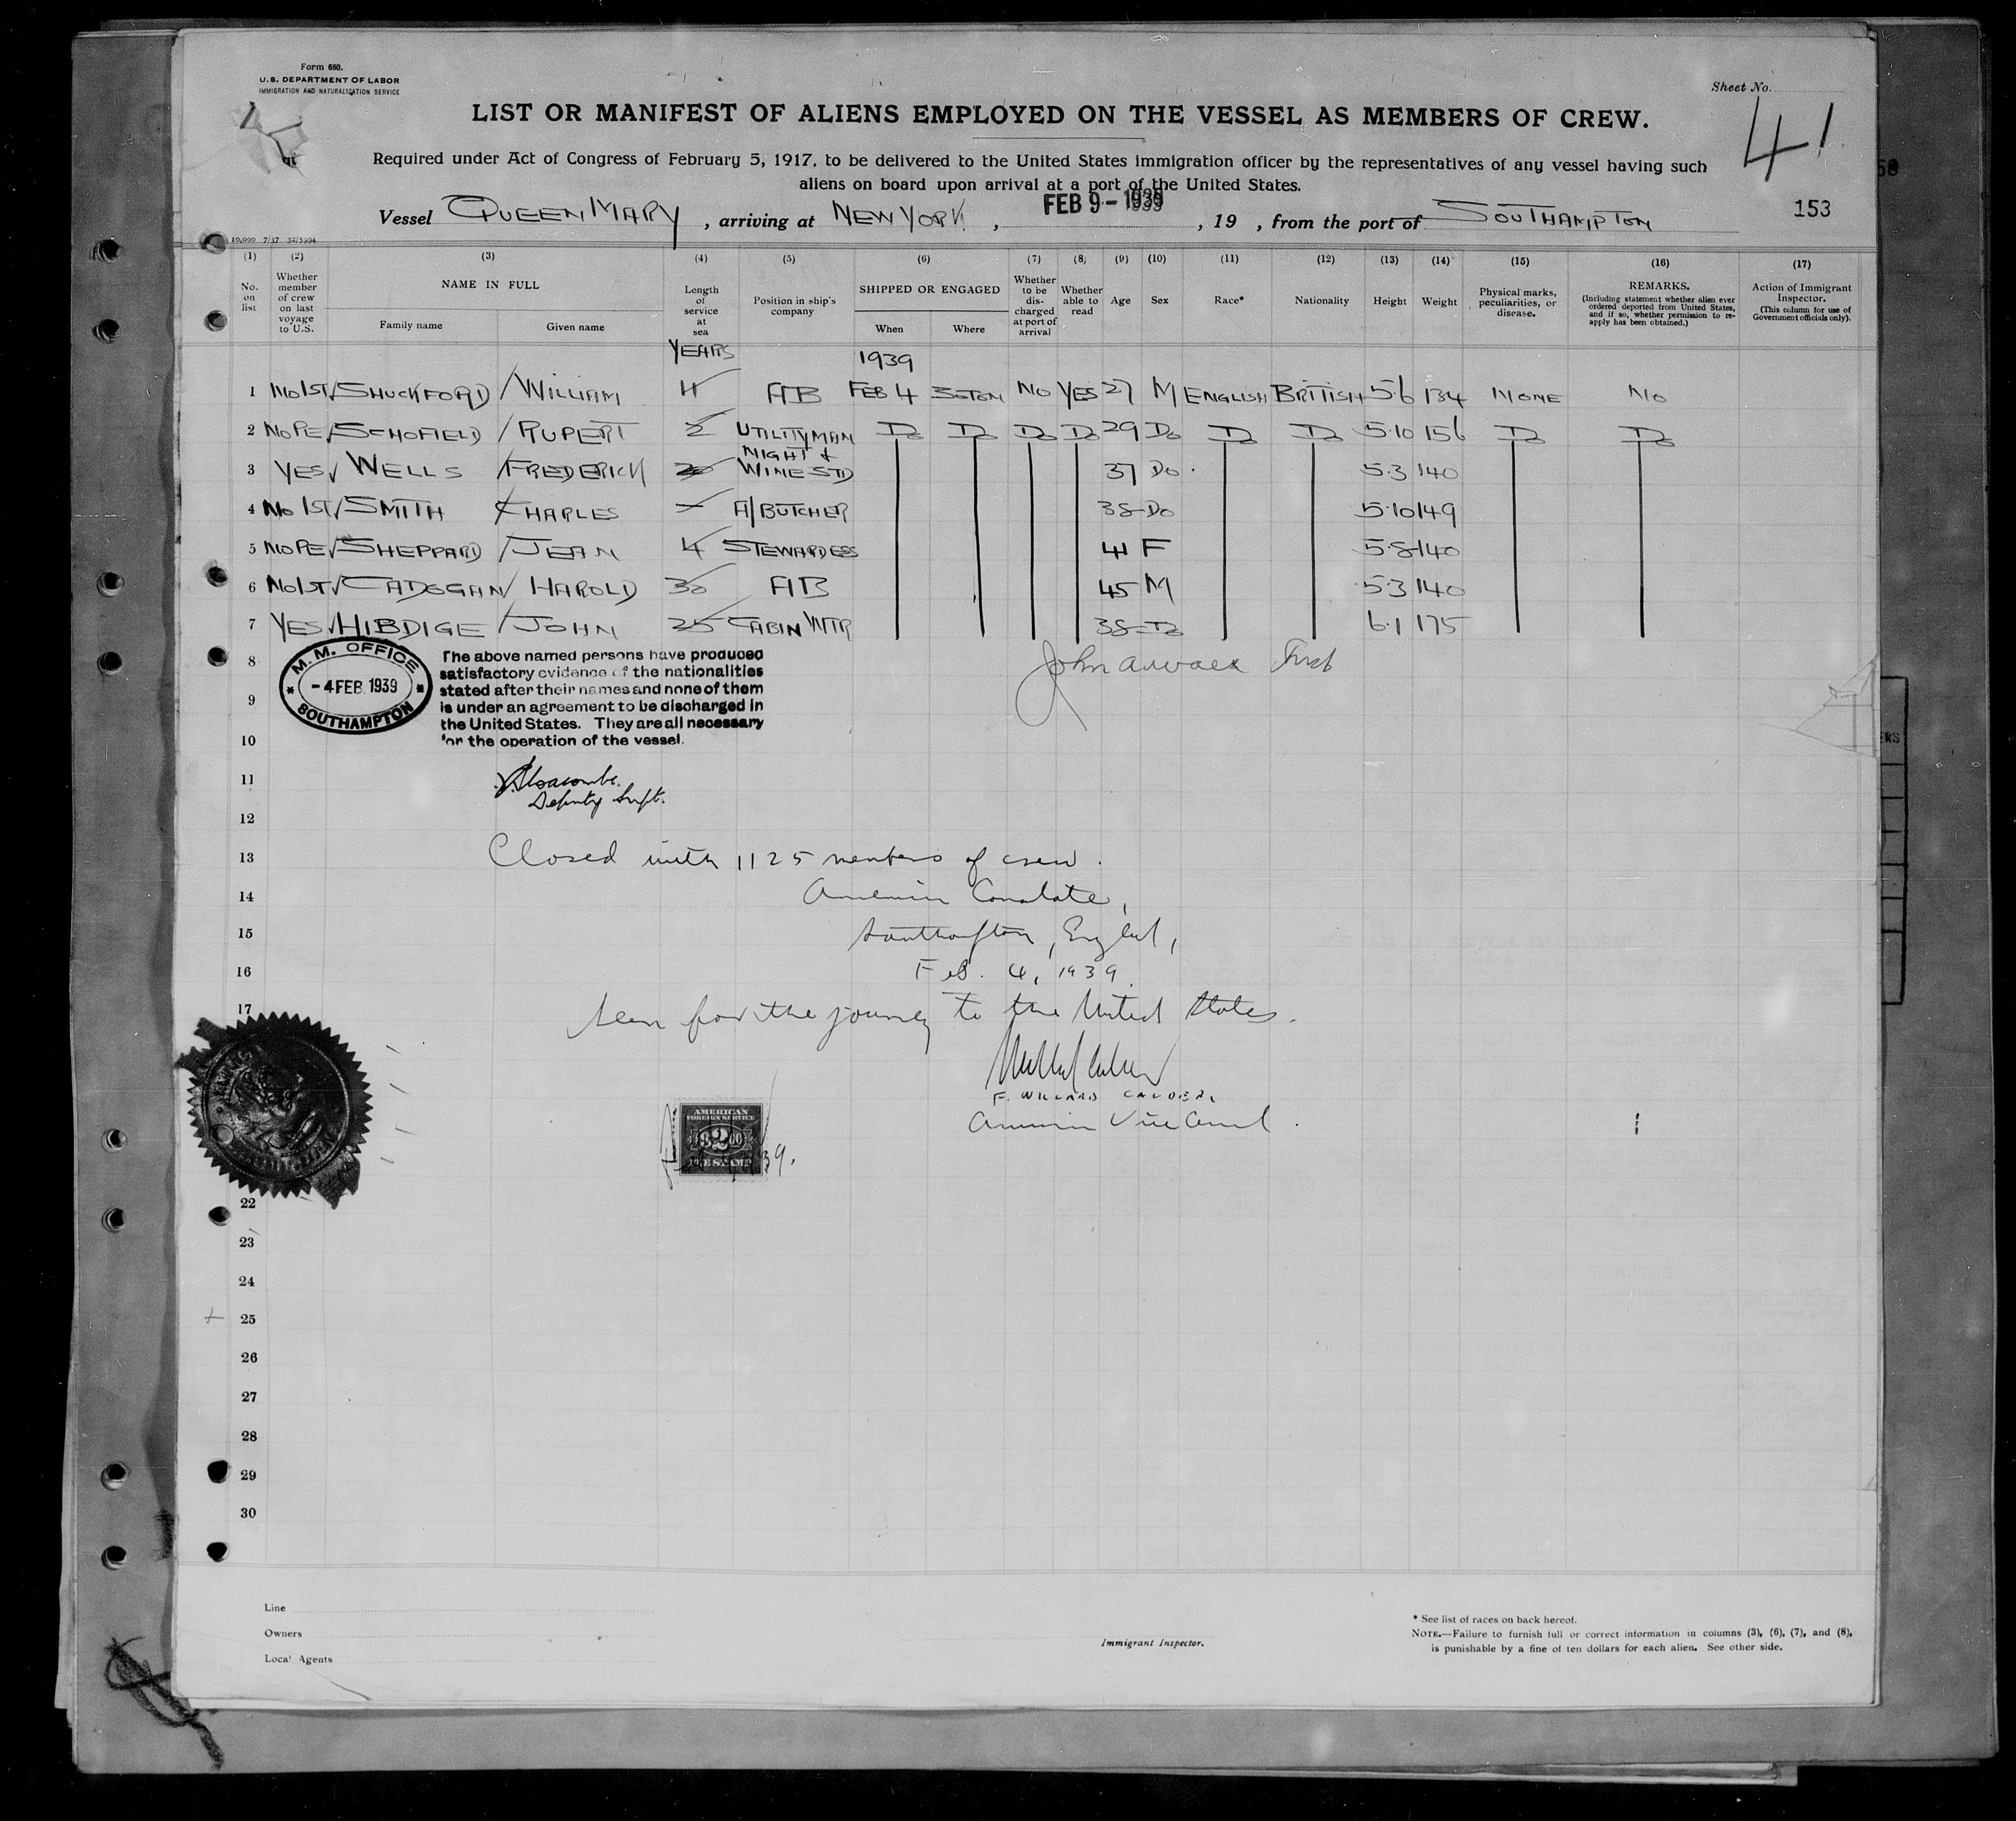 Form 680.
U.S. DEPARTMENT OF LABOR
IMMIGRATION AND NATURALIZATION SERVICE
Sheet No.
41
LIST OR MANIFEST OF ALIENS EMPLOYED ON THE VESSEL AS MEMBERS OF CREW.
Required under Act of Congress of February 5, 1917, to be delivered to the United States immigration officer by the representatives of any vessel having such
aliens on board upon arrival at a port of the United States.
Vessel QUEEN MARY, arriving at NEW YORK, FEB 9 - 1939, 19 , from the port of SOUTHAMPTON
153
10,000 7/37
(1) (2) (3) (4) (5) (6) (7) (8) (9) (10) (11) (12) (13) (14) (15) (16) (17)
No. on list
Whether member of crew on last voyage to U.S.
NAME IN FULL
Family name Given name
Length of service at sea
Position in ship's company
SHIPPED OR ENGAGED
When Where
Whether to be discharged at port of arrival
Whether able to read
Age Sex Race* Nationality Height Weight
Physical marks, peculiarities, or disease.
REMARKS.
(Including statement whether alien ever ordered deported from United States, and if so, whether permission to reapply has been obtained.)
Action of Immigrant Inspector.
(This column for use of Government officials only).
YEARS 1939
1 NO 1ST SHUCKFORD WILLIAM 11 AB FEB 4 SOTON NO YES 27 M ENGLISH BRITISH 5.6 134 NONE NO
2 NO PE SCHOFIELD RUPERT 2 UTILITYMAN DO DO DO DO 29 DO DO DO 5.10 156 DO DO
3 YES WELLS FREDERICK 20 NIGHT & WINE STD 37 DO 5.3 140
4 NO 1ST SMITH CHARLES — A/BUTCHER 38 DO 5.10 149
5 NO PE SHEPPARD JEAN 4 STEWARDESS 41 F 5.8 140
6 NO 1ST CADOGAN HAROLD 30 AB 45 M 5.3 140
7 YES HIBDIGE JOHN 25 CABIN WTR 38 DO 6.1 175
8
9
10
M.M. OFFICE
- 4 FEB. 1939
SOUTHAMPTON
The above named persons have produced
satisfactory evidence of the nationalities
stated after their names and none of them
is under an agreement to be discharged in
the United States. They are all necessary
for the operation of the vessel.
John
11
Deputy Supt.
12
13 Closed with 1125 members of crew.
14 American Consulate,
15 Southampton, England,
16 Feb. 4, 1939.
17 Seen for the journey to the United States.
F. WILLARD CALDER,
American Vice Consul.
AMERICAN
FOREIGN SERVICE
$2.00
FEE STAMP
22
23
24
25
26
27
28
29
30
Line
Owners
Local Agents
Immigrant Inspector.
* See list of races on back hereof.
NOTE.—Failure to furnish full or correct information in columns (3), (6), (7), and (8),
is punishable by a fine of ten dollars for each alien. See other side.